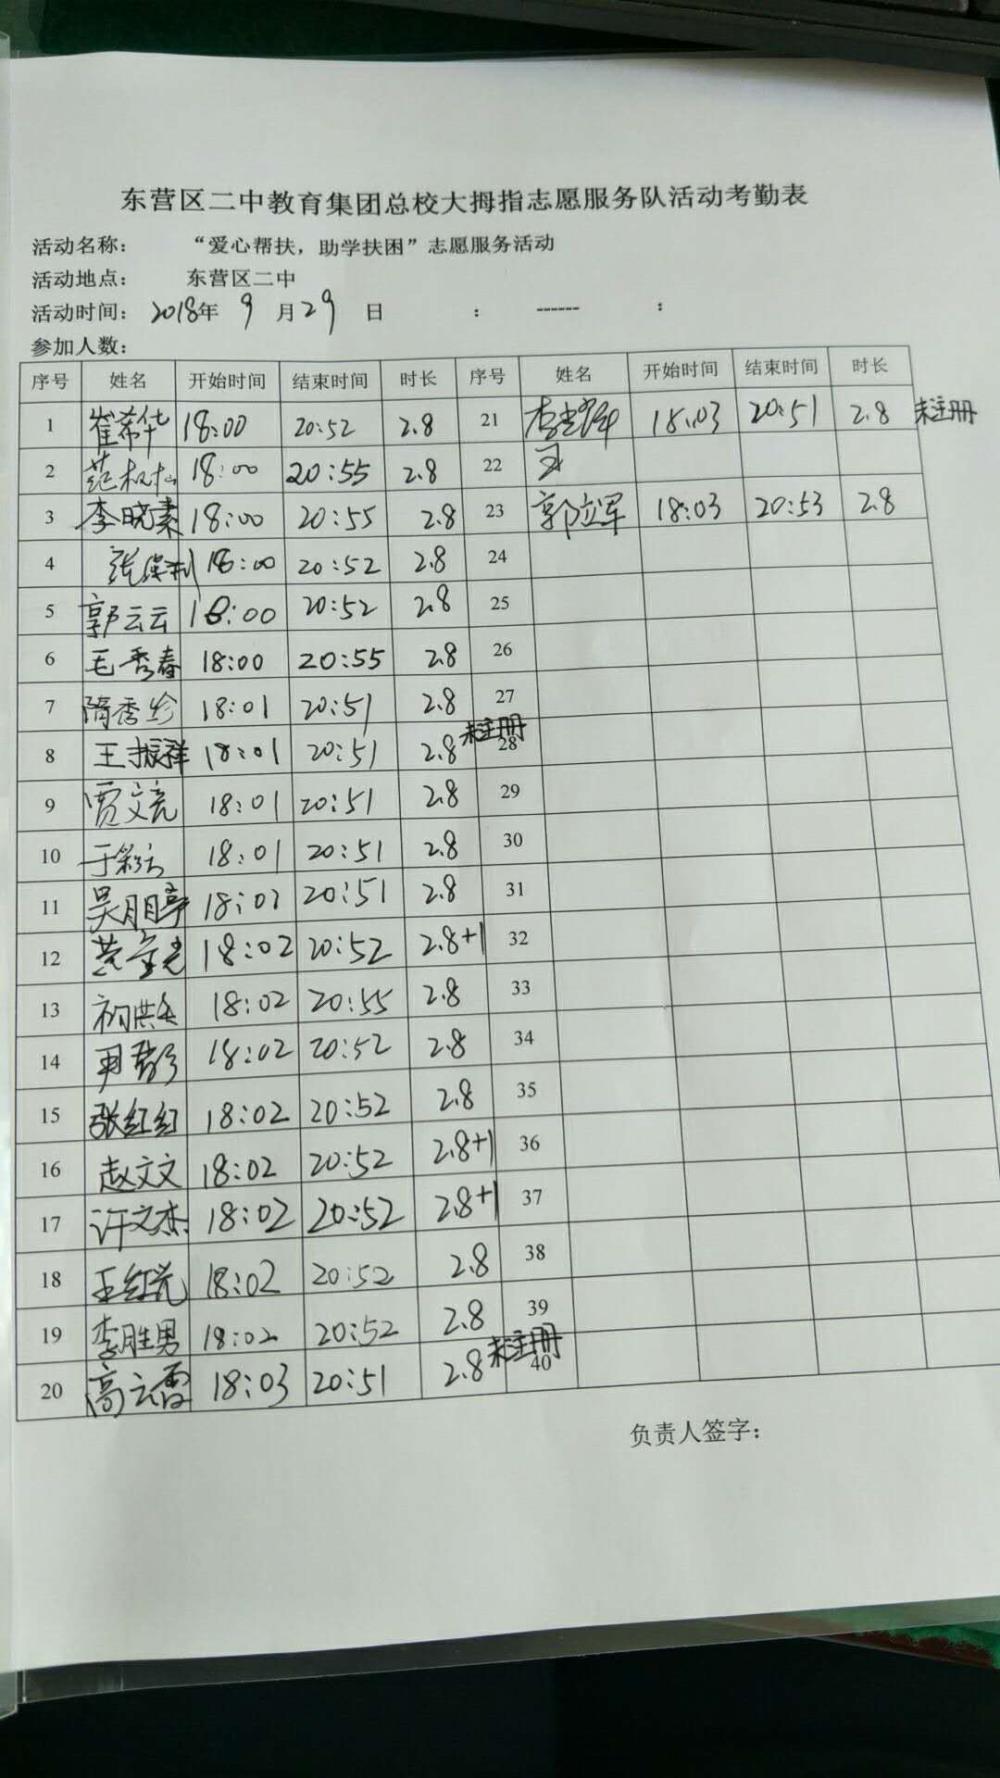 东营区二中教育集团总校大拇指志愿服务队活动考勤表
活动名称： “爱心帮扶，助学扶困”志愿服务活动
活动地点： 东营区二中
活动时间： 2018年 9 月 29 日 : ------ :
参加人数：
序号 姓名 开始时间 结束时间 时长 序号 姓名 开始时间 结束时间 时长
1 崔希华 18:00 20:52 2.8 21 18:03 20:51 2.8 未注册
2 18:00 20:55 2.8 22
3 李晓素 18:00 20:55 2.8 23 郭立军 18:03 20:53 2.8
4 张保利 18:00 20:52 2.8 24
5 郭云云 18:00 20:52 2.8 25
6 毛秀春 18:00 20:55 2.8 26
7 隋秀珍 18:01 20:51 2.8 27
8 王振祥 18:01 20:51 2.8 未注册 28
9 贾文亮 18:01 20:51 2.8 29
10 18:01 20:51 2.8 30
11 吴月亭 18:01 20:51 2.8 31
12 18:02 20:52 2.8+1 32
13 18:02 20:55 2.8 33
14 18:02 20:52 2.8 34
15 张红红 18:02 20:52 2.8 35
16 赵文文 18:02 20:52 2.8+1 36
17 许文杰 18:02 20:52 2.8+1 37
18 王红光 18:02 20:52 2.8 38
19 李胜男 18:02 20:52 2.8 39
20 高云霞 18:03 20:51 2.8 未注册 40
负责人签字：